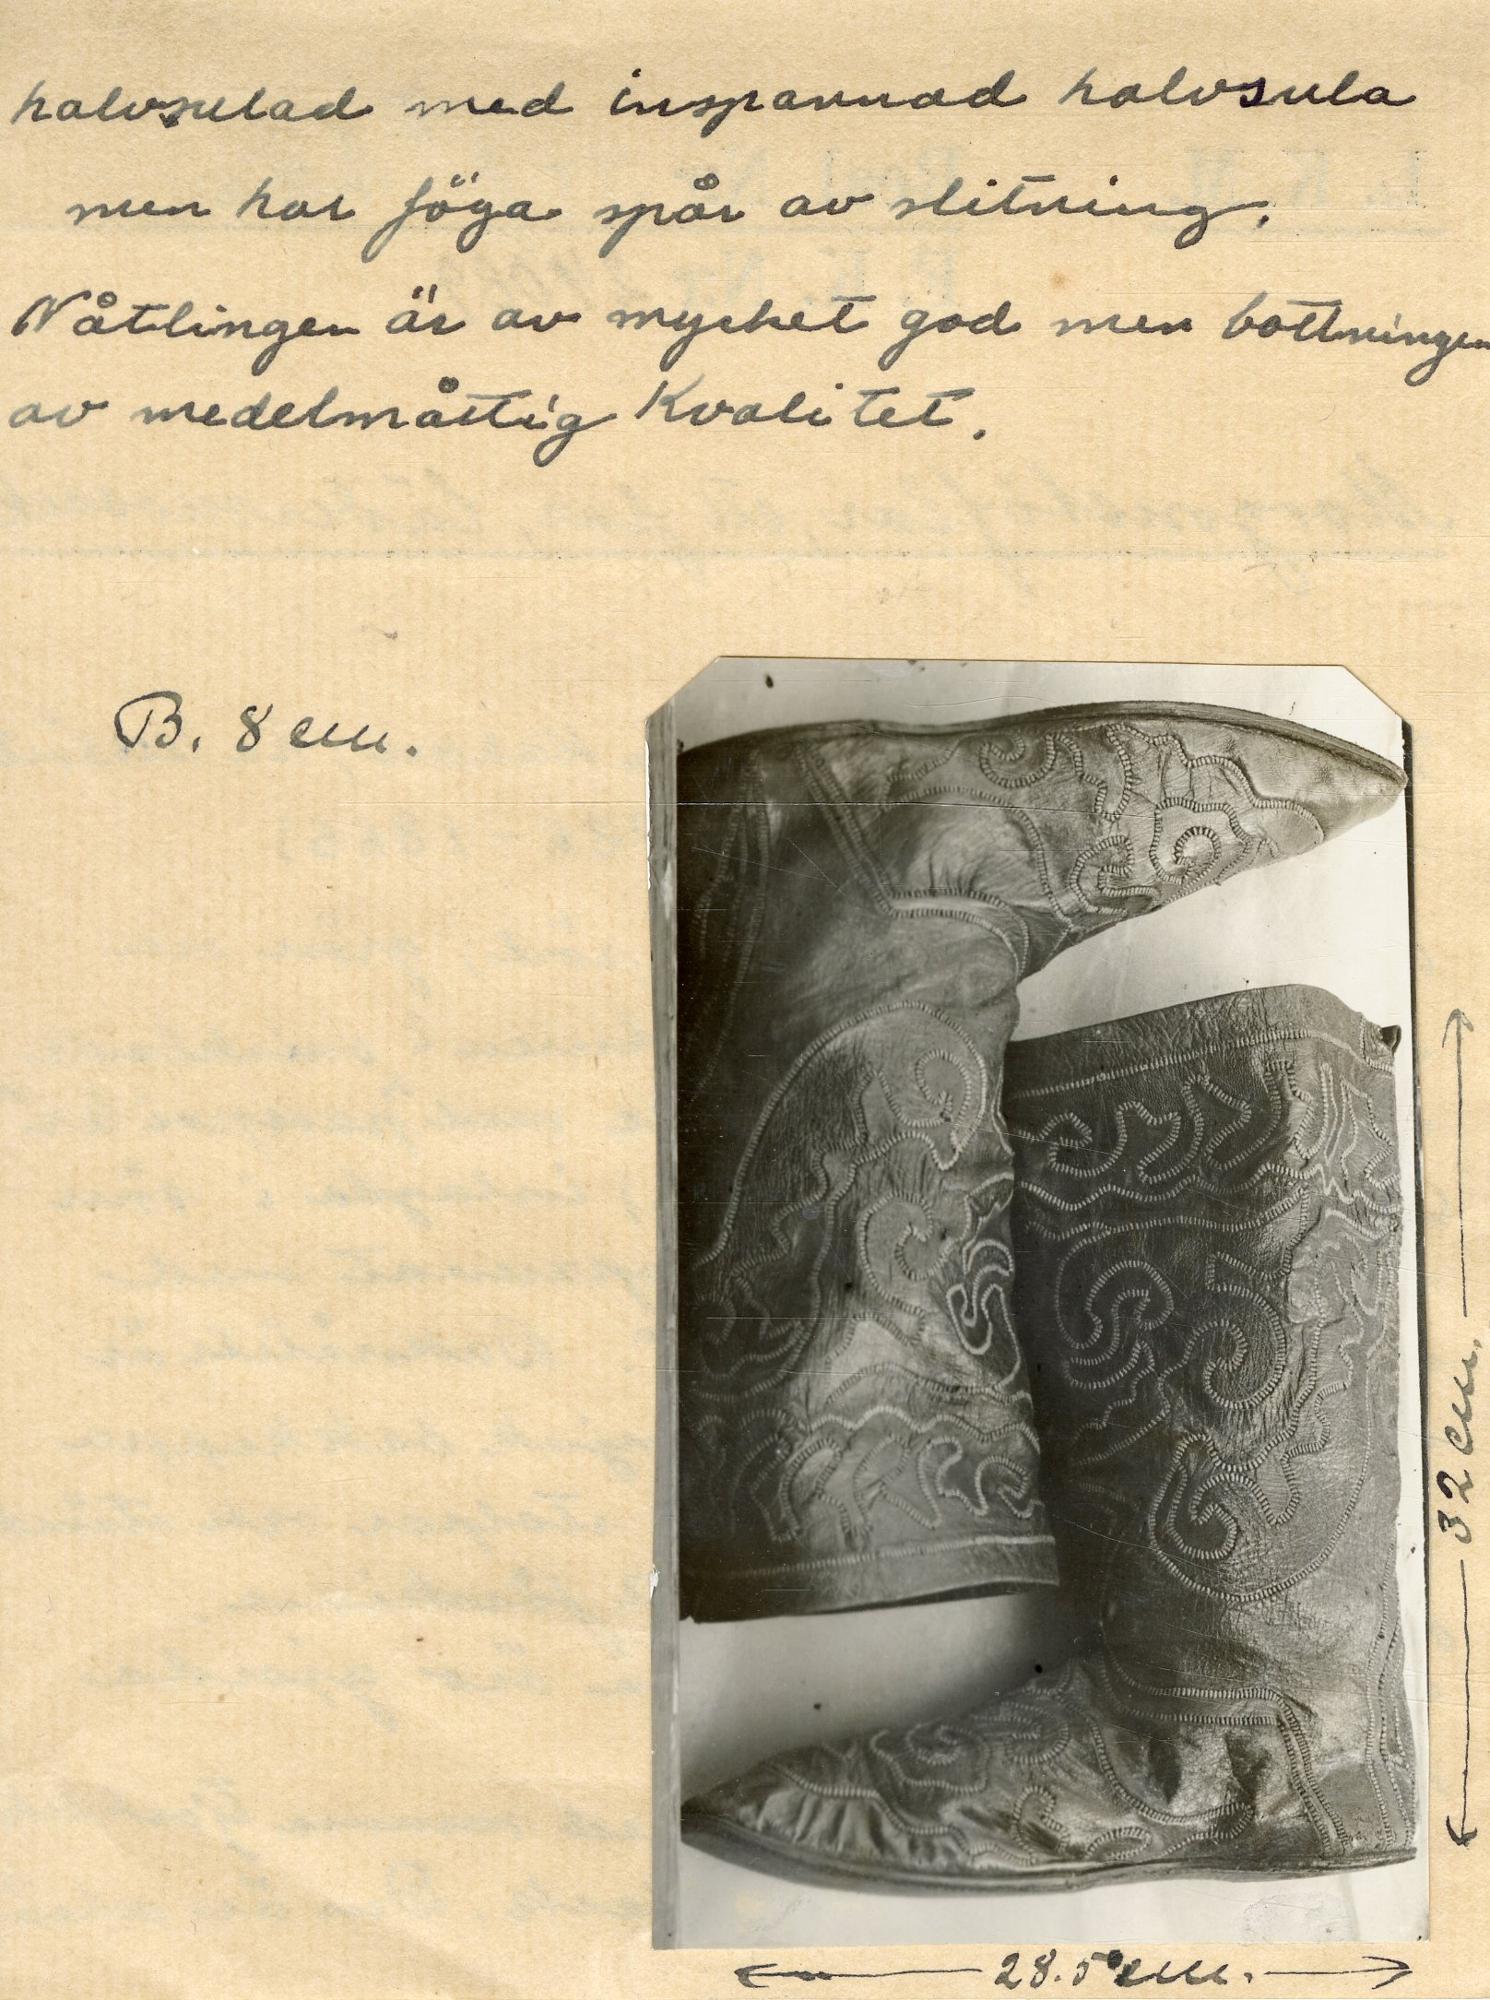 halvsulad med inspannad halvsula
men har föga spår av slitning.
Nåtlingen är av mycket god men bottningen
av medelmåttig Kvalitet.
B. 8 cm.
32 cm.
28.5 cm.